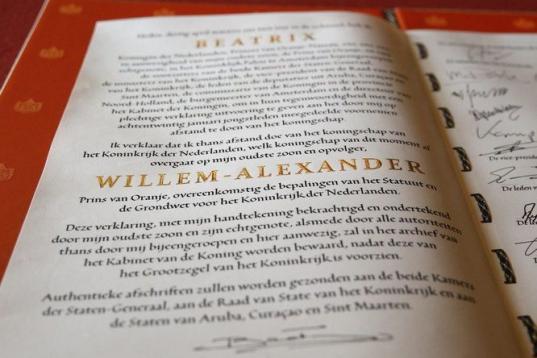 Heden, dertig april
BEATRIX
Koningin der Nederlanden, Prinses van Oranje-Nassau,
in aanwezigheid van mijn oudste zoon, de Prins van Oranje, en zijn
echtgenote, in het Koninklijk Paleis te Amsterdam bijeengeroepen
de voorzitters van de beide Kamers der Staten-Generaal,
de ministers van het Koninkrijk, de vice-president van de Raad van State
van het Koninkrijk, de leden van de
Sint Maarten, de commissaris van de Koningin in de provincie
Noord-Holland, de burgemeester van Amsterdam en de directeur van
het Kabinet der Koningin, om in hun tegenwoordigheid met een
plechtige verklaring uitvoering te geven aan het door mij op
achtentwintig januari jongstleden meegedeelde voornemen
afstand te doen van het koningschap.
Ik verklaar dat ik thans afstand doe van het koningschap van
het Koninkrijk der Nederlanden, welk koningschap van dit moment af
overgaat op mijn oudste zoon en opvolger,
WILLEM-ALEXANDER
Prins van Oranje, overeenkomstig de bepalingen van het Statuut en
de Grondwet voor het Koninkrijk der Nederlanden.
Deze verklaring, met mijn handtekening bekrachtigd en ondertekend
door mijn oudste zoon en zijn echtgenote, alsmede door alle autoriteiten
thans door mij bijeengeroepen en hier aanwezig, zal in het archief van
het Kabinet van de Koning worden bewaard, nadat deze van
het Grootzegel van het Koninkrijk is voorzien.
Authentieke afschriften zullen worden gezonden aan de beide Kamers
der Staten-Generaal, aan de Raad van State van het Koninkrijk en aan
de Staten van Aruba, Curaçao en Sint Maarten.
De vice-presid
De leden v